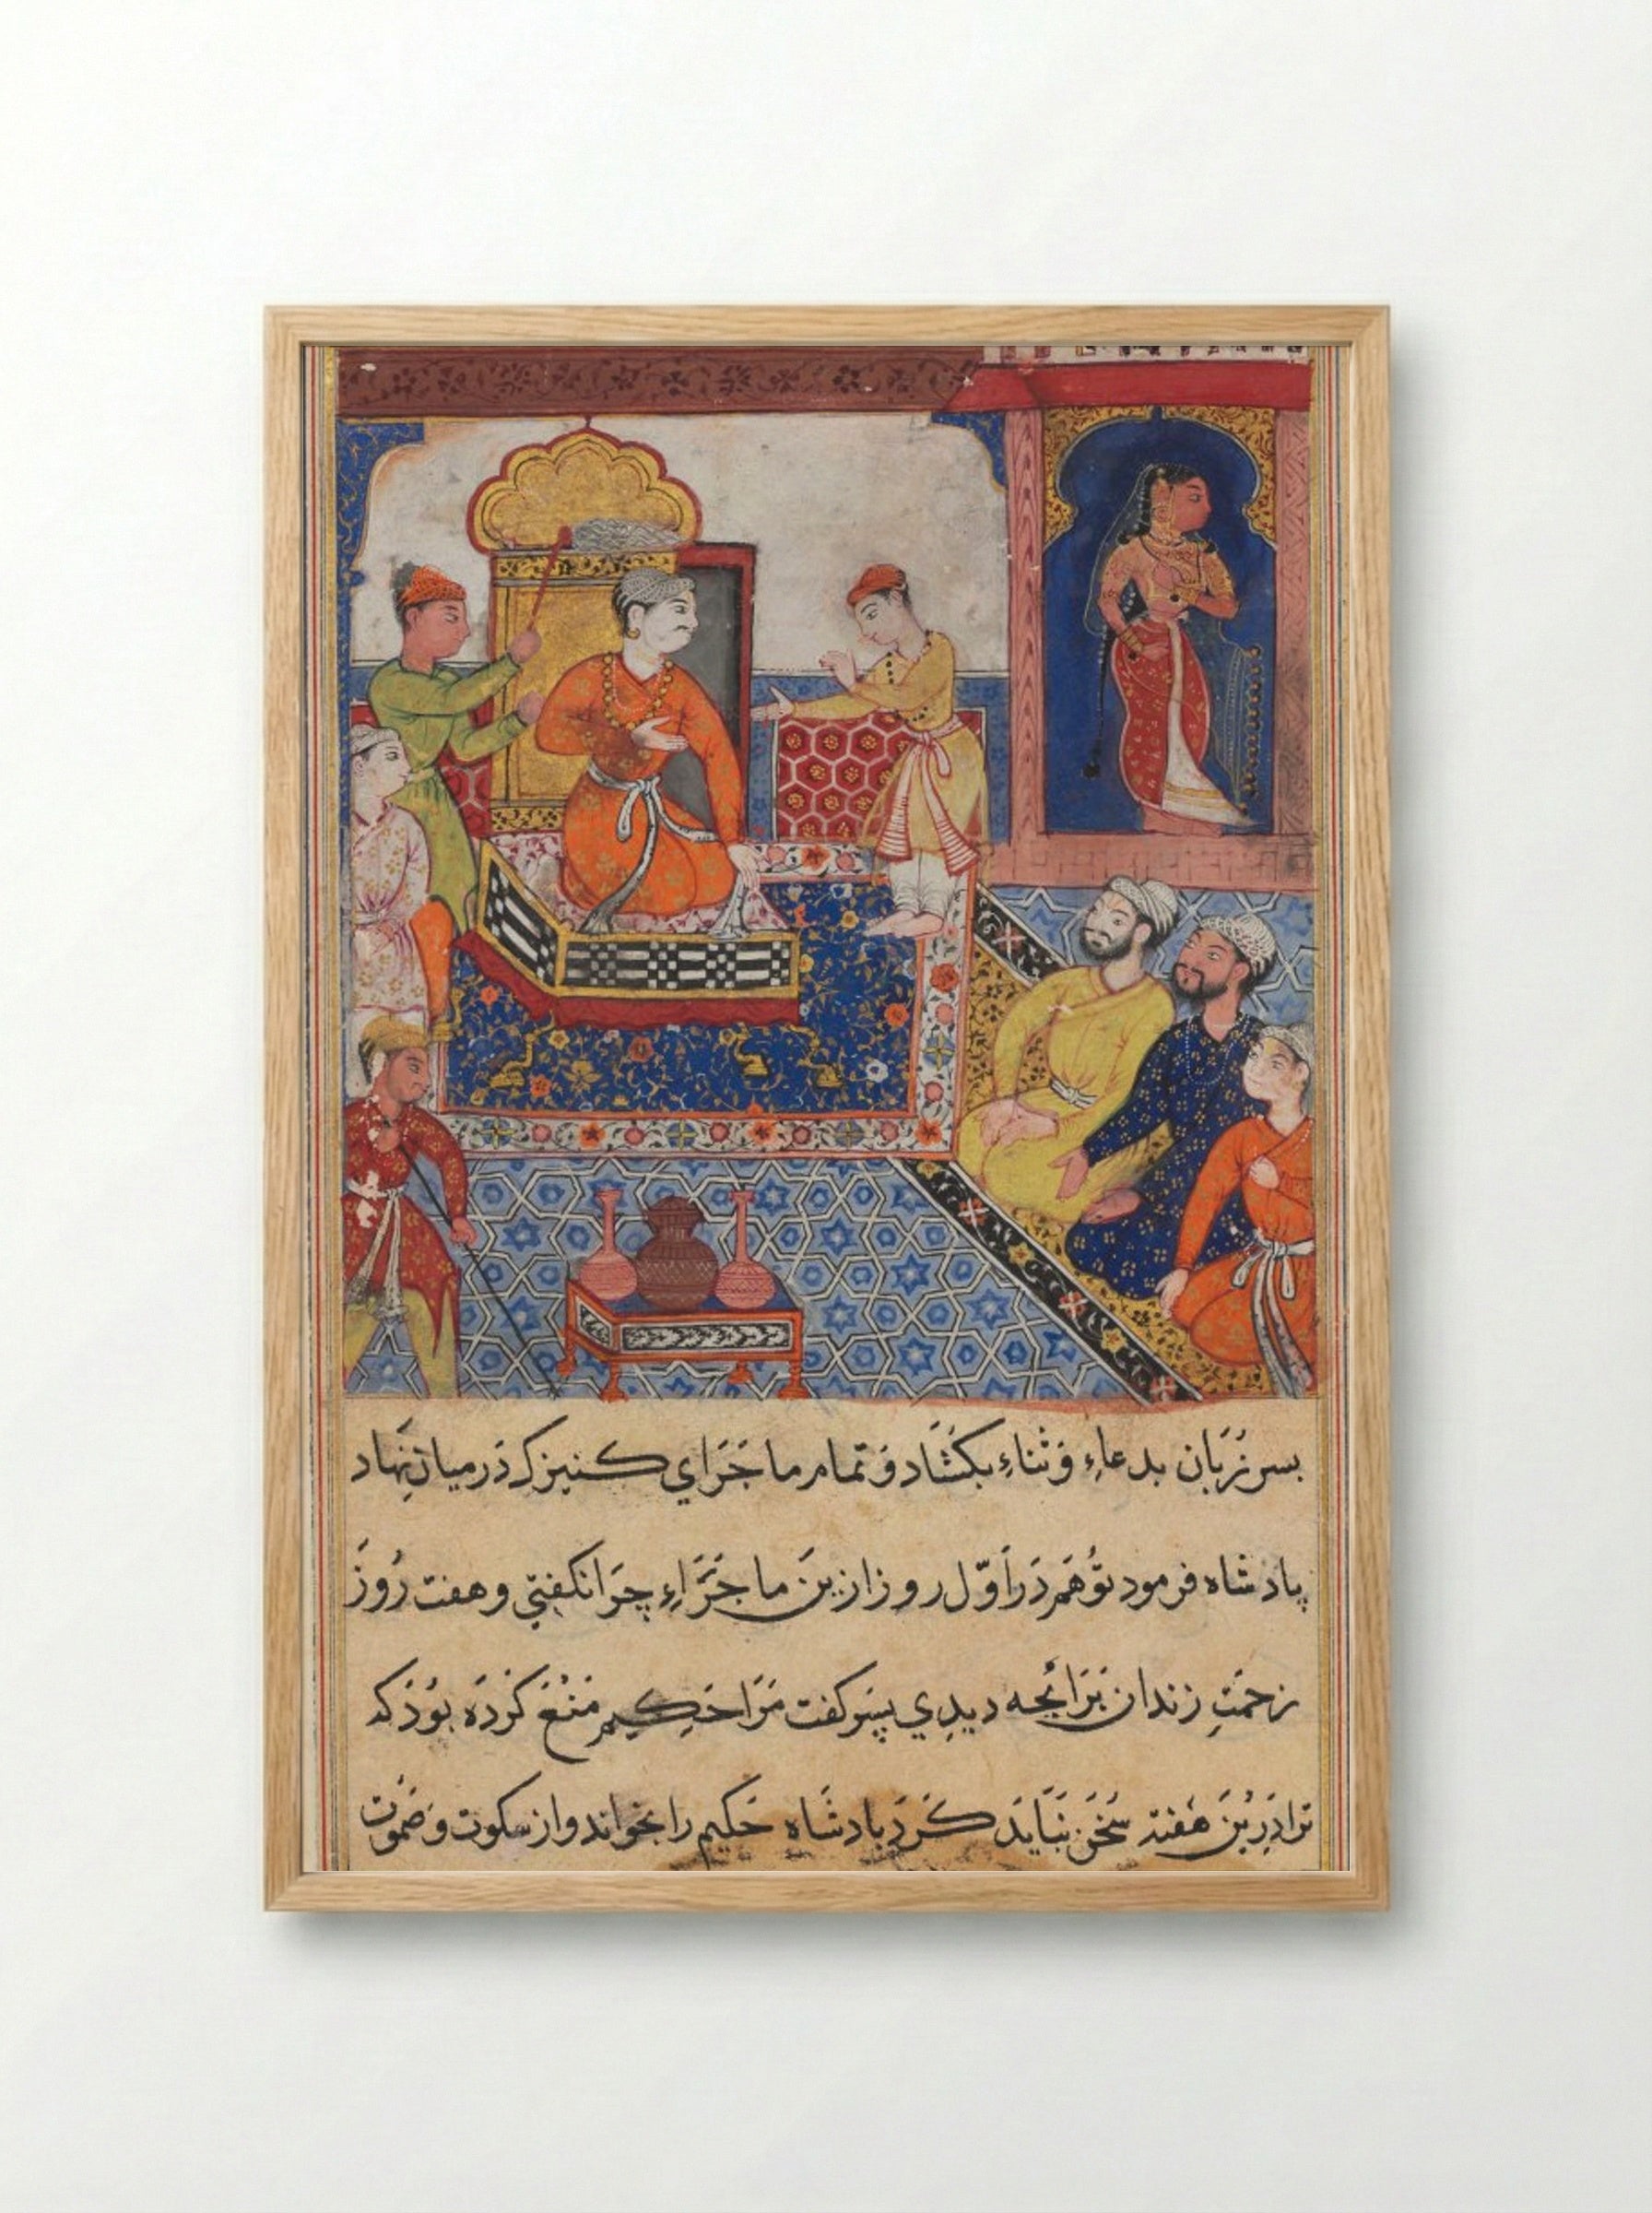 پسر زبان بدعاء و ثناء بکشاد و تمام ماجراي کنیزک در میان نهاد
پادشاه فرمود تو هم در اول روز ازین ماجراء چرا نکفتي و هفت روز
زحمت زندان برائچه دیدي پسر کفت مرا حکیم منع کرده بود که
ترا درین هفته سخن نباید کرد پادشاه حکیم را بخواند و از سکوت و صموت